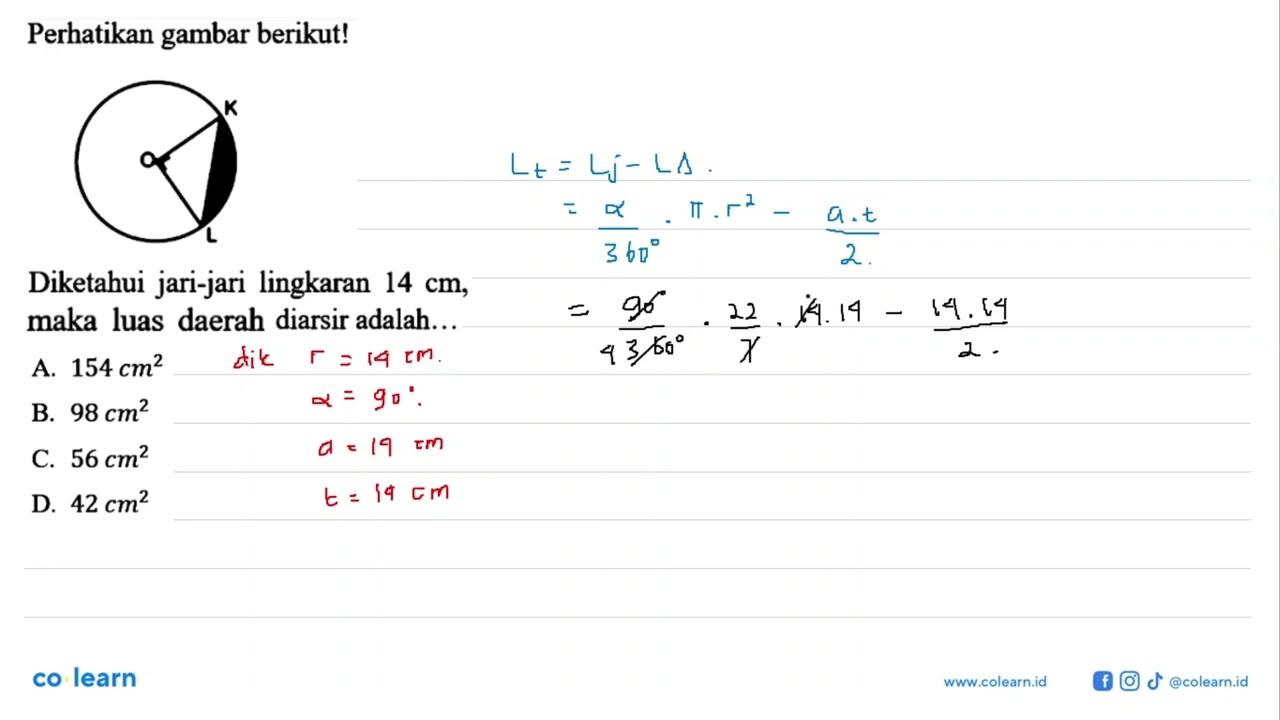 Perhatikan gambar berikut!
K
O
L
Diketahui jari-jari lingkaran 14 cm,
maka luas daerah diarsir adalah...
A. 154 cm²
B. 98 cm²
C. 56 cm²
D. 42 cm²
dik r = 14 cm.
α = 90°.
a = 14 cm
t = 14 cm
Lt = Lj - LΔ.
= α/360° . π.r² - a.t/2.
= 90°/4 360° . 22/7 . 14.14 - 14.14/2.
co learn
www.colearn.id
@colearn.id